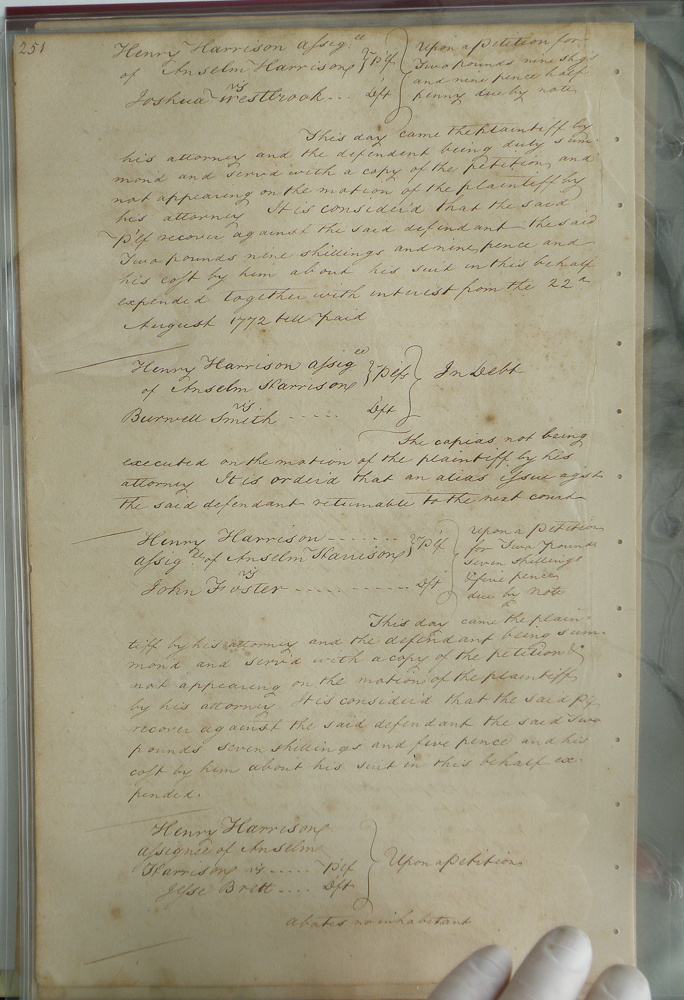 251
Henry Harrison assig.ee
of Anselm Harrison } P'lf
vs
Joshua Westbrook... Dft
Upon a Petition for
Two pounds nine sh'gs
and nine pence half
penny due by note
This day came the plaintiff by
his attorney and the defendent being duly sum-
mon'd and serv'd with a copy of the petition and
not appearing on the motion of the plaintiff by
his attorney It is consider'd that the said
P'lf recover against the said defendant the said
Two pounds nine shillings and nine pence and
his cost by him about his suit in this behalf
expended together with interest from the 22d
August 1772 till paid
Henry Harrison assigee
of Anselm Harrison } P'lf
vs
Burwell Smith ..... Dft
In Debt
The capias not being
executed on the motion of the plaintiff by his
attorney It is order'd that an alias issue agst
the said defendant returnable to the next court
Henry Harrison .......
assignee of Anselm Harrison } P'lf
vs
John Foster .......... Dft
Upon a Petition
for Two Pounds
seven shillings
& five pence
due by Note
This day came the plain-
tiff by his attorney and the defendant being sum-
mon'd and serv'd with a copy of the petition &
not appearing on the motion of the plaintiff
by his attorney It is consider'd that the said P'lf
recover against the said defendant the said Two
pounds seven shillings and five pence and his
cost by him about his suit in this behalf ex-
pended.
Henry Harrison
assignee of Anselm
Harrison vs ..... P'lf
Jesse Brett .... Dft
Upon a Petition
abates no inhabitant